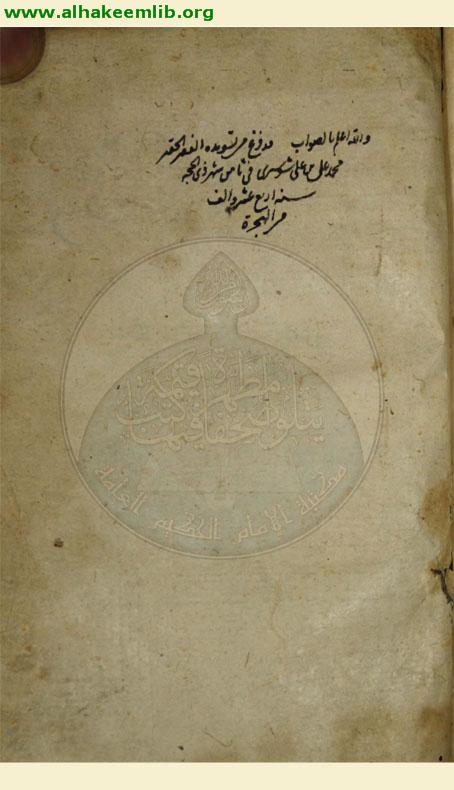 www.alhakeemlib.org
والله اعلم بالصواب قد فرغ من تسويده الفقير الحقير
محمد علي بن علي شوشتري في ثامن شهر ذي الحجه
سنه اربع عشر والف
من الهجرة
يتلو صحفا مطهرة فيها كتب قيمة
مكتبة الامام الحكيم العامة